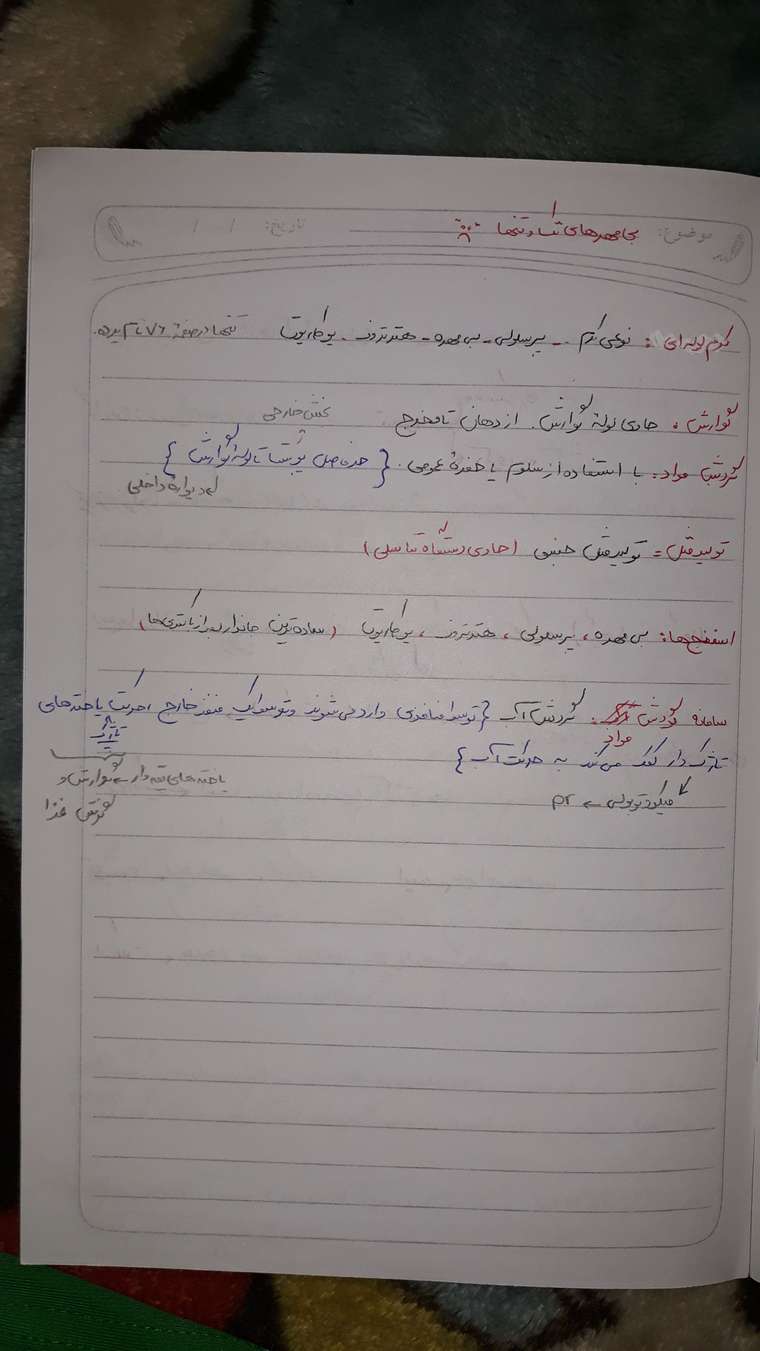 موضوع: بی مهره های تک و تنها
تاریخ: / /
کرم لوله ای: نوعی کرم - پرسلولی - بی مهره - هتروتروف - یوکاریوت تنها در صفحهٔ ۷۶ نام برده.
گوارش: حاوی لولهٔ گوارش. از دهان تا مخرج
بخش خارجی
گردش مواد: با استفاده از سلوم یا حفرهٔ عمومی. {حدفاصل پوست تا لولهٔ گوارش}
دیوارهٔ داخلی
تولیدمثل = تولیدمثل جنسی (حاوی دستگاه تناسلی)
اسفنج ها: بی مهره، پرسلولی، هتروتروف، یوکاریوت (ساده ترین جاندار بعد از باکتری ها)
سامانه گردش مواد: گردش آب {توسط منافذی وارد می شوند و توسط یک منفذ خارج، حرکت یاخته های
تاژک
تاژک دار کمک می کند به حرکت آب}
یاخته های یقه دار ← گوارش و
گرفتن غذا
میکروتوبولی ← pr